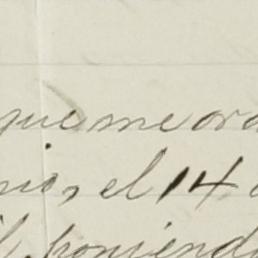 que me ord
nio, el 14 d
il poniendo